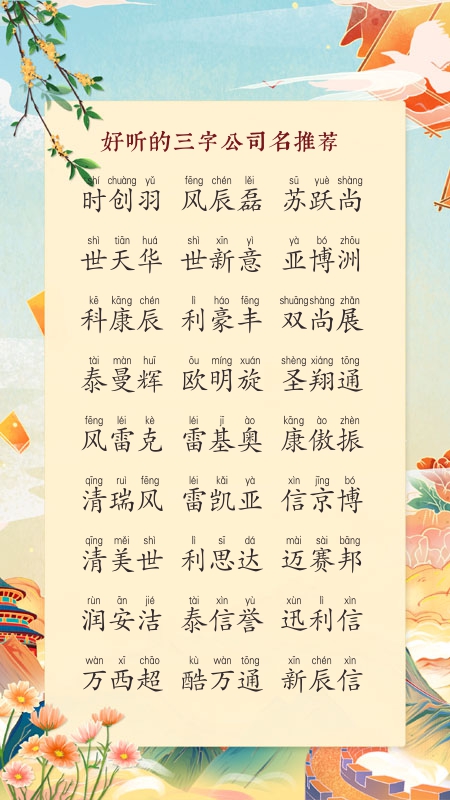 好听的三字公司名推荐
shí chuàng yǔ fēng chén lěi sū yuè shàng
时创羽 风辰磊 苏跃尚
shì tiān huá shì xīn yì yà bó zhōu
世天华 世新意 亚博洲
kē kāng chén lì háo fēng shuāng shàng zhǎn
科康辰 利豪丰 双尚展
tài màn huī ōu míng xuán shèng xiáng tōng
泰曼辉 欧明旋 圣翔通
fēng léi kè léi jī ào kāng ào zhèn
风雷克 雷基奥 康傲振
qīng ruì fēng léi kǎi yà xìn jīng bó
清瑞风 雷凯亚 信京博
qīng měi shì lì sī dá mài sài bāng
清美世 利思达 迈赛邦
rùn ān jié tài xìn yù xùn lì xìn
润安洁 泰信誉 迅利信
wàn xī chāo kù wàn tōng xīn chén xìn
万西超 酷万通 新辰信